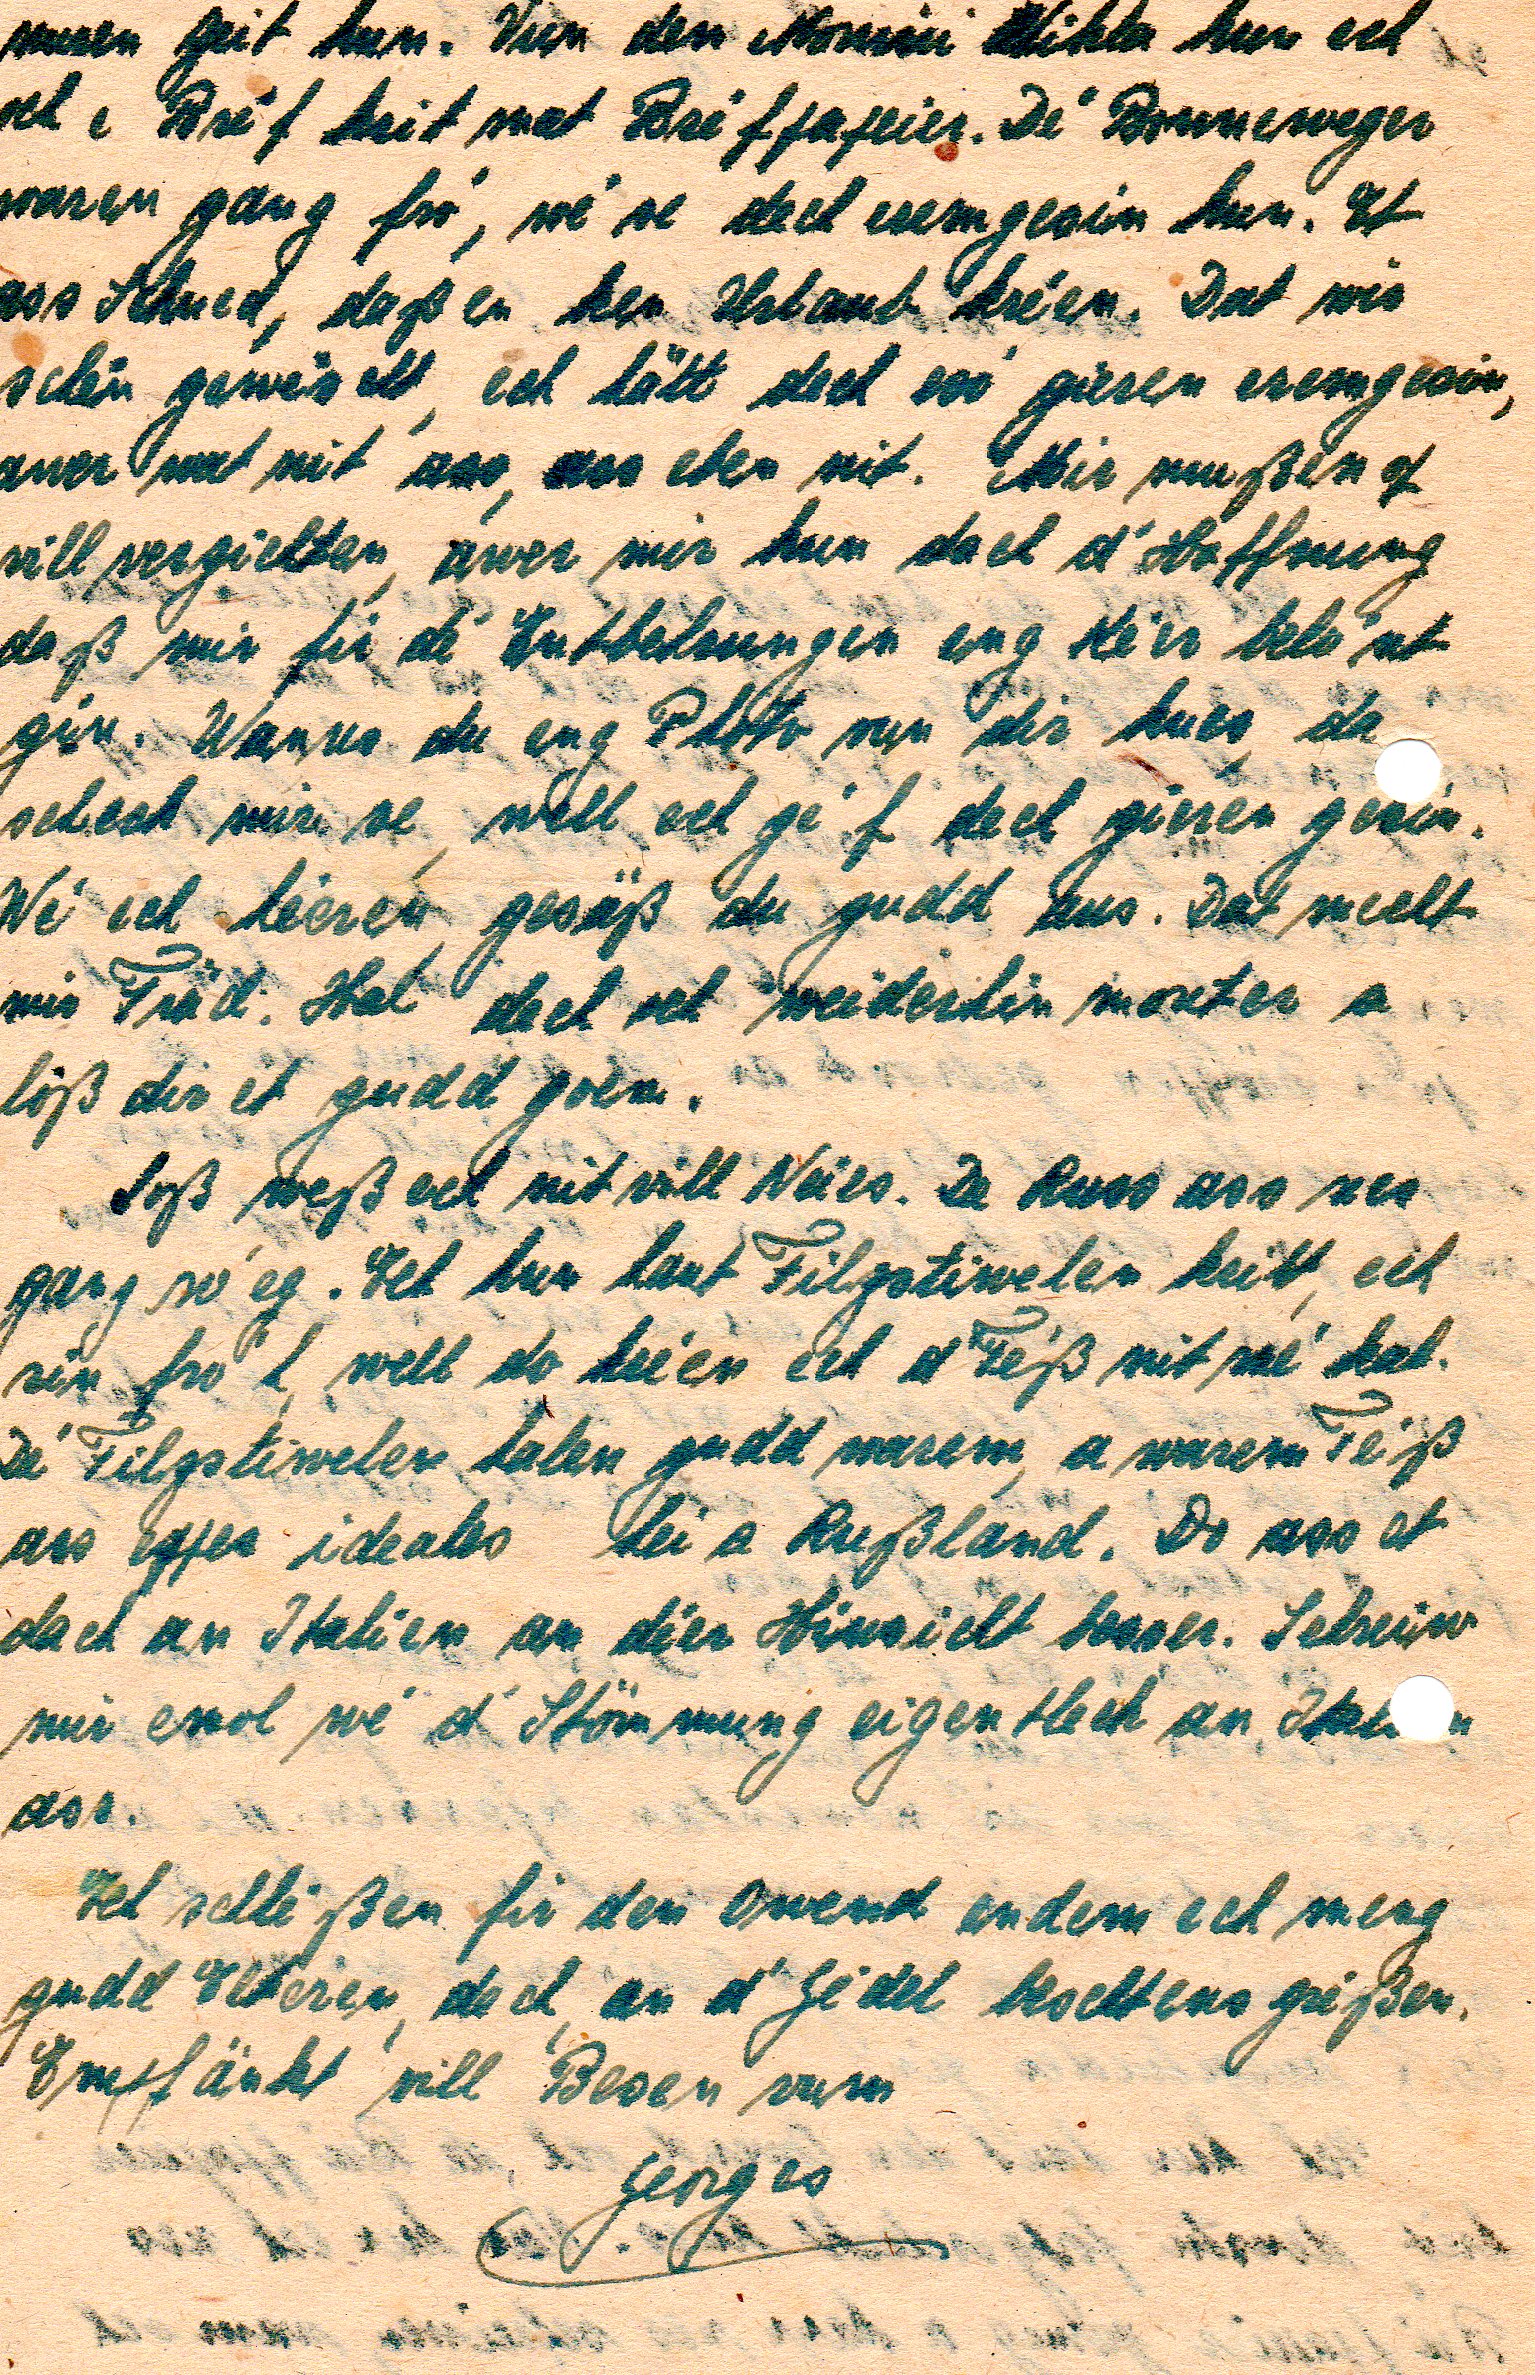 muren geit hun. Vun den Monni Wikta hun ech
och e Bréf krit mat Bréfpapeier. Dé Bouneweger
waren gang fró, wé se dech eremgesin hun. Et
ass Schued, daß en ken Urlaub kréen. Dat wir
schén gewiescht, ech hätt dech esó gieren eremgesin,
awer wat nit ass, ass eben nit. Mir mußen op
vill verzichten, awer mir hun dach d'Hoffnung
daß mir fir dé Entbehrungen eng Kéer belóhnt
gin. Wanns du eng Photo vun dir hues, da
scheck mir se, well ech géif dech gieren gesin.
Wé ech héeren, gesäß du gudd aus. Dat mecht
mir Fräd. Hal dech och weiderhin monter a
löß dir et gudd goen.
Soß weß ech nit vill Neies. De Russ ass nes
gang róeg. Ech hun haut Filzstiwelen kritt, ech
sin fróh, well do kréen ech d'Féß nit mé kal.
Dé Filzstiwelen halen gudd warem, a warem Féiß
ass eppes ideales hei a Rußland. Do ass et
dach an Italien an dier Hinsicht besser. Schreiw
mir emol wé d'Stömmung eigentlech an Italien
ass.
Ech schléßen fir den Owend endem ech meng
gudd Elteren, dech, an d'Gédel beschtens gréßen.
Empfänkt vill Besen vum
Georges